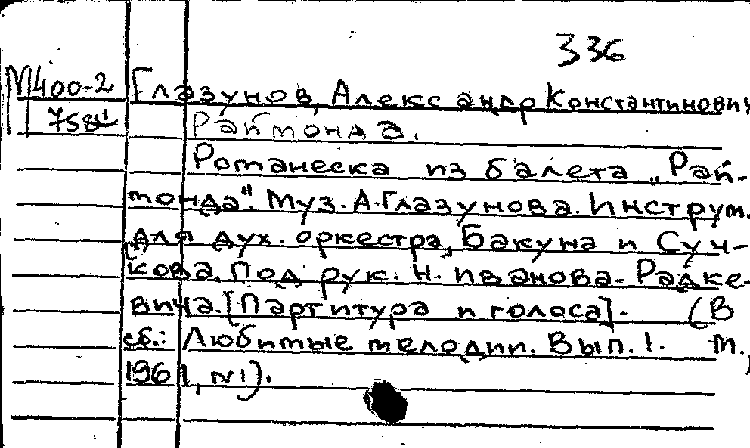 336
М400-2 Глазунов, Александр Константинович
758 Раймонда.
Романеска из балета „Рай-
монда". Муз. А. Глазунова. Инструм.
для дух. оркестра, Бакуна и Суч-
кова, под рук. Н. Иванова-Радке-
вича. [Партитура и голоса]. (В
сб.: Любимые мелодии. Вып. 1. М.,
1961, №1).